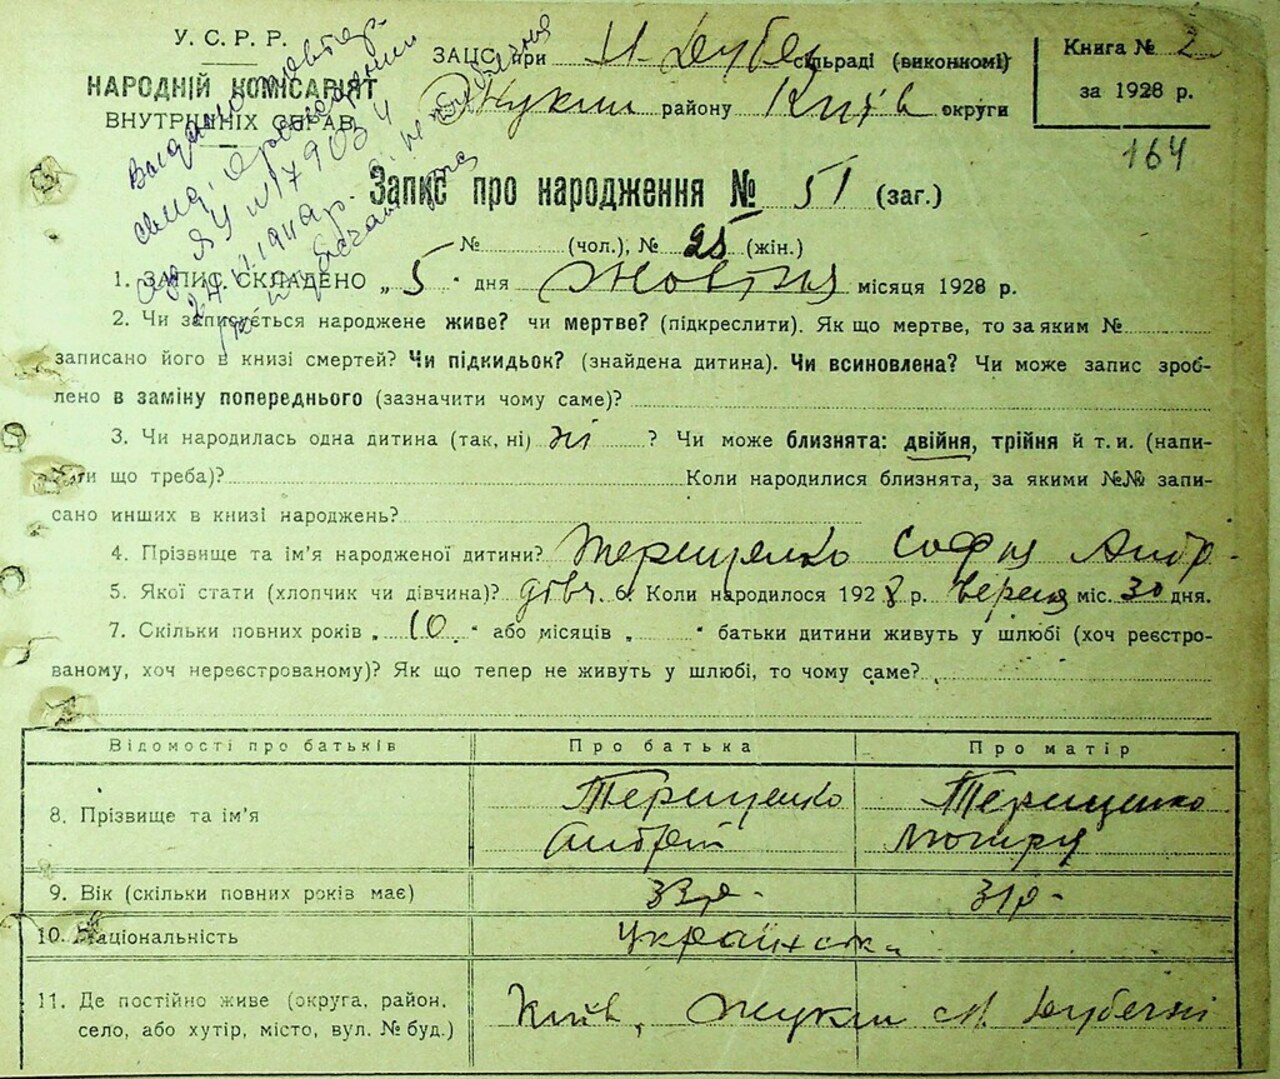 У. С. Р. Р.
НАРОДНІЙ КОМІСАРІЯТ
ВНУТРІШНІХ СПРАВ
ЗАЦС при Н. Дубеч сільраді (виконкомі)
Жукин району Київ округи
Книга № 2
за 1928 р.
164
Запис про народження № 51 (заг.)
№ (чол.), № 25 (жін.)
1. ЗАПИС СКЛАДЕНО „ 5 " дня Жовтня місяця 1928 р.
2. Чи записується народжене живе? чи мертве? (підкреслити). Як що мертве, то за яким №
записано його в книзі смертей? Чи підкидьок? (знайдена дитина). Чи всиновлена? Чи може запис зроб-
лено в заміну попереднього (зазначити чому саме)?
3. Чи народилась одна дитина (так, ні) ні ? Чи може близнята: двійня, трійня й т. и. (напи-
сати що треба)? Коли народилися близнята, за якими №№ запи-
сано инших в книзі народжень?
4. Прізвище та ім'я народженої дитини? Терещенко София Андр-
5. Якої стати (хлопчик чи дівчина)? дівч. 6. Коли народилося 1928 р. Вересня міс. 30 дня.
7. Скільки повних років „ 10 " або місяців „ " батьки дитини живуть у шлюбі (хоч реєстро-
ваному, хоч нереєстрованому)? Як що тепер не живуть у шлюбі, то чому саме?
Відомості про батьків Про батька Про матір
8. Прізвище та ім'я Терещенко Андрей Терещенко
9. Вік (скільки повних років має) 33р- 31р-
10. Національність Українськ
11. Де постійно живе (округа, район, село, або хутір, місто, вул. № буд.) Київ, Жукин Н. Дубечні